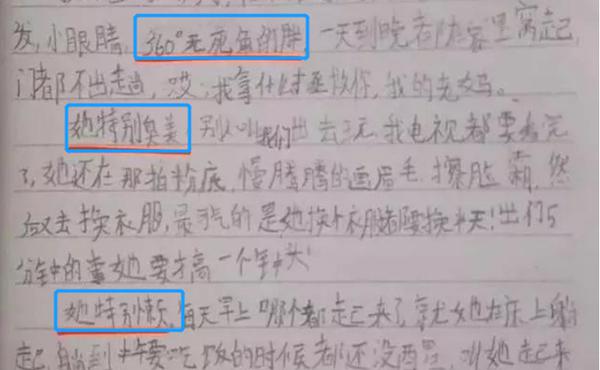 发,小眼睛,360°无死角的胖,一天到晚都在家里窝起,
门都不出一趟,哎,我拿什么拯救你,我的老妈。
她特别臭美,别人叫我们出去玩,我电视都要看完
了,她还在那拍粉底,慢腾腾的画眉毛,擦脸霜,然
后又去换衣服,最气的是她换个衣服都要换半天!出门5
分钟的事她要才高一个钟头!
她特别懒,每天早上哪个都起来了,就她在床上躺
起,躺到中午要吃饭的时候都还没洗,叫她起来